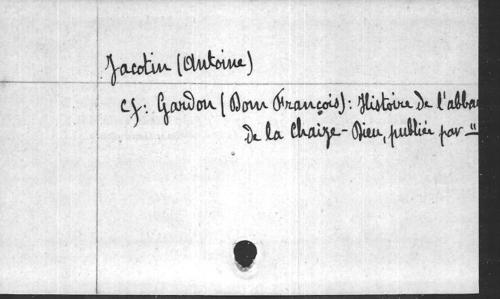 Jacotin (Antoine)
cf: Gardon (Dom François): Histoire de l'abba
de la Chaize-Dieu, publiée par "